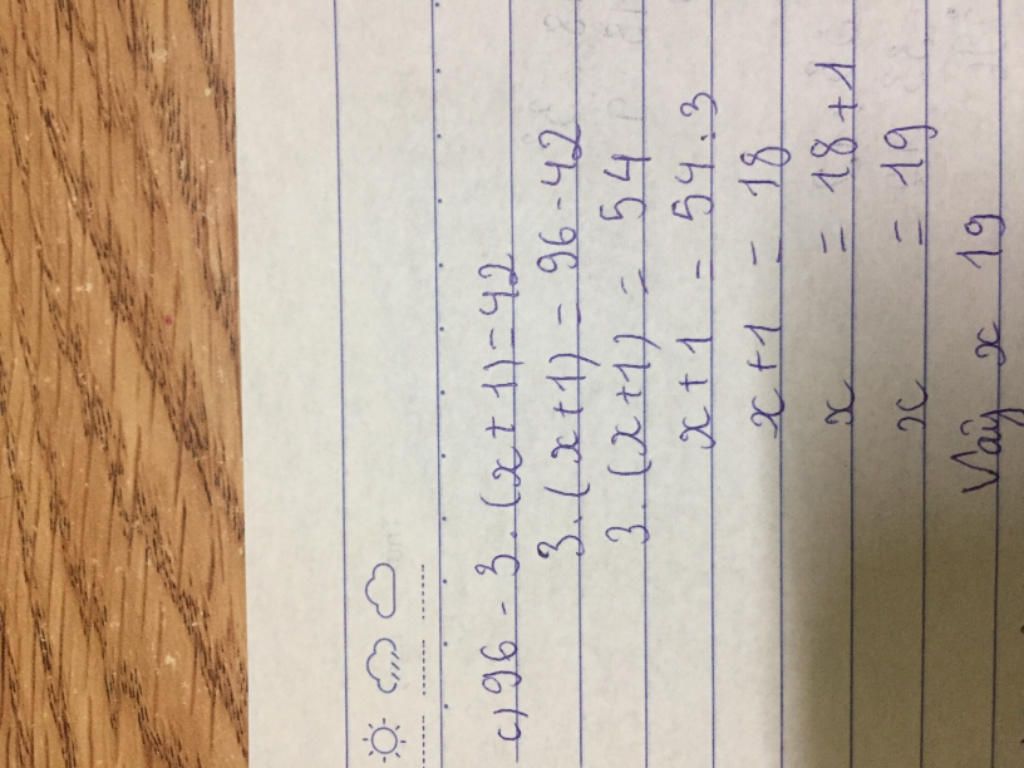 c) 96 - 3.(x+1)=42
3.(x+1) = 96-42
3.(x+1) = 54
x+1 = 54:3
x+1 = 18
x = 18+1
x = 19
Vậy x 19